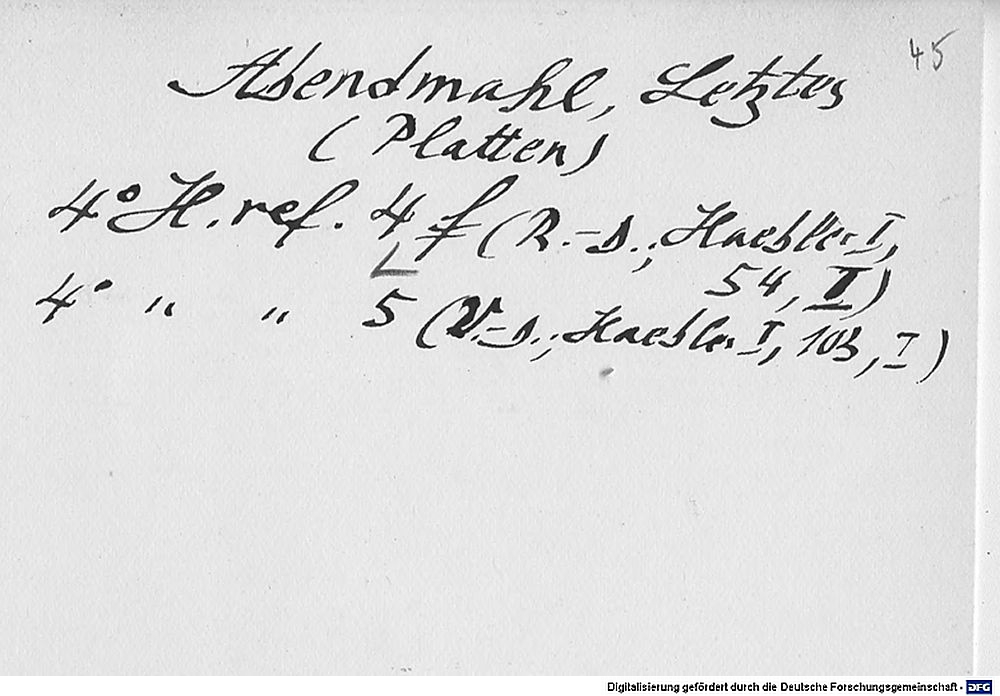 45
Abendmahl, Letztes
(Platten)
4° H. ref. 4 f (R.-s.; Haebler I,
54, II)
4° " " 5 (V.-s.; Haebler I, 103, I)
Digitalisierung gefördert durch die Deutsche Forschungsgemeinschaft - DFG